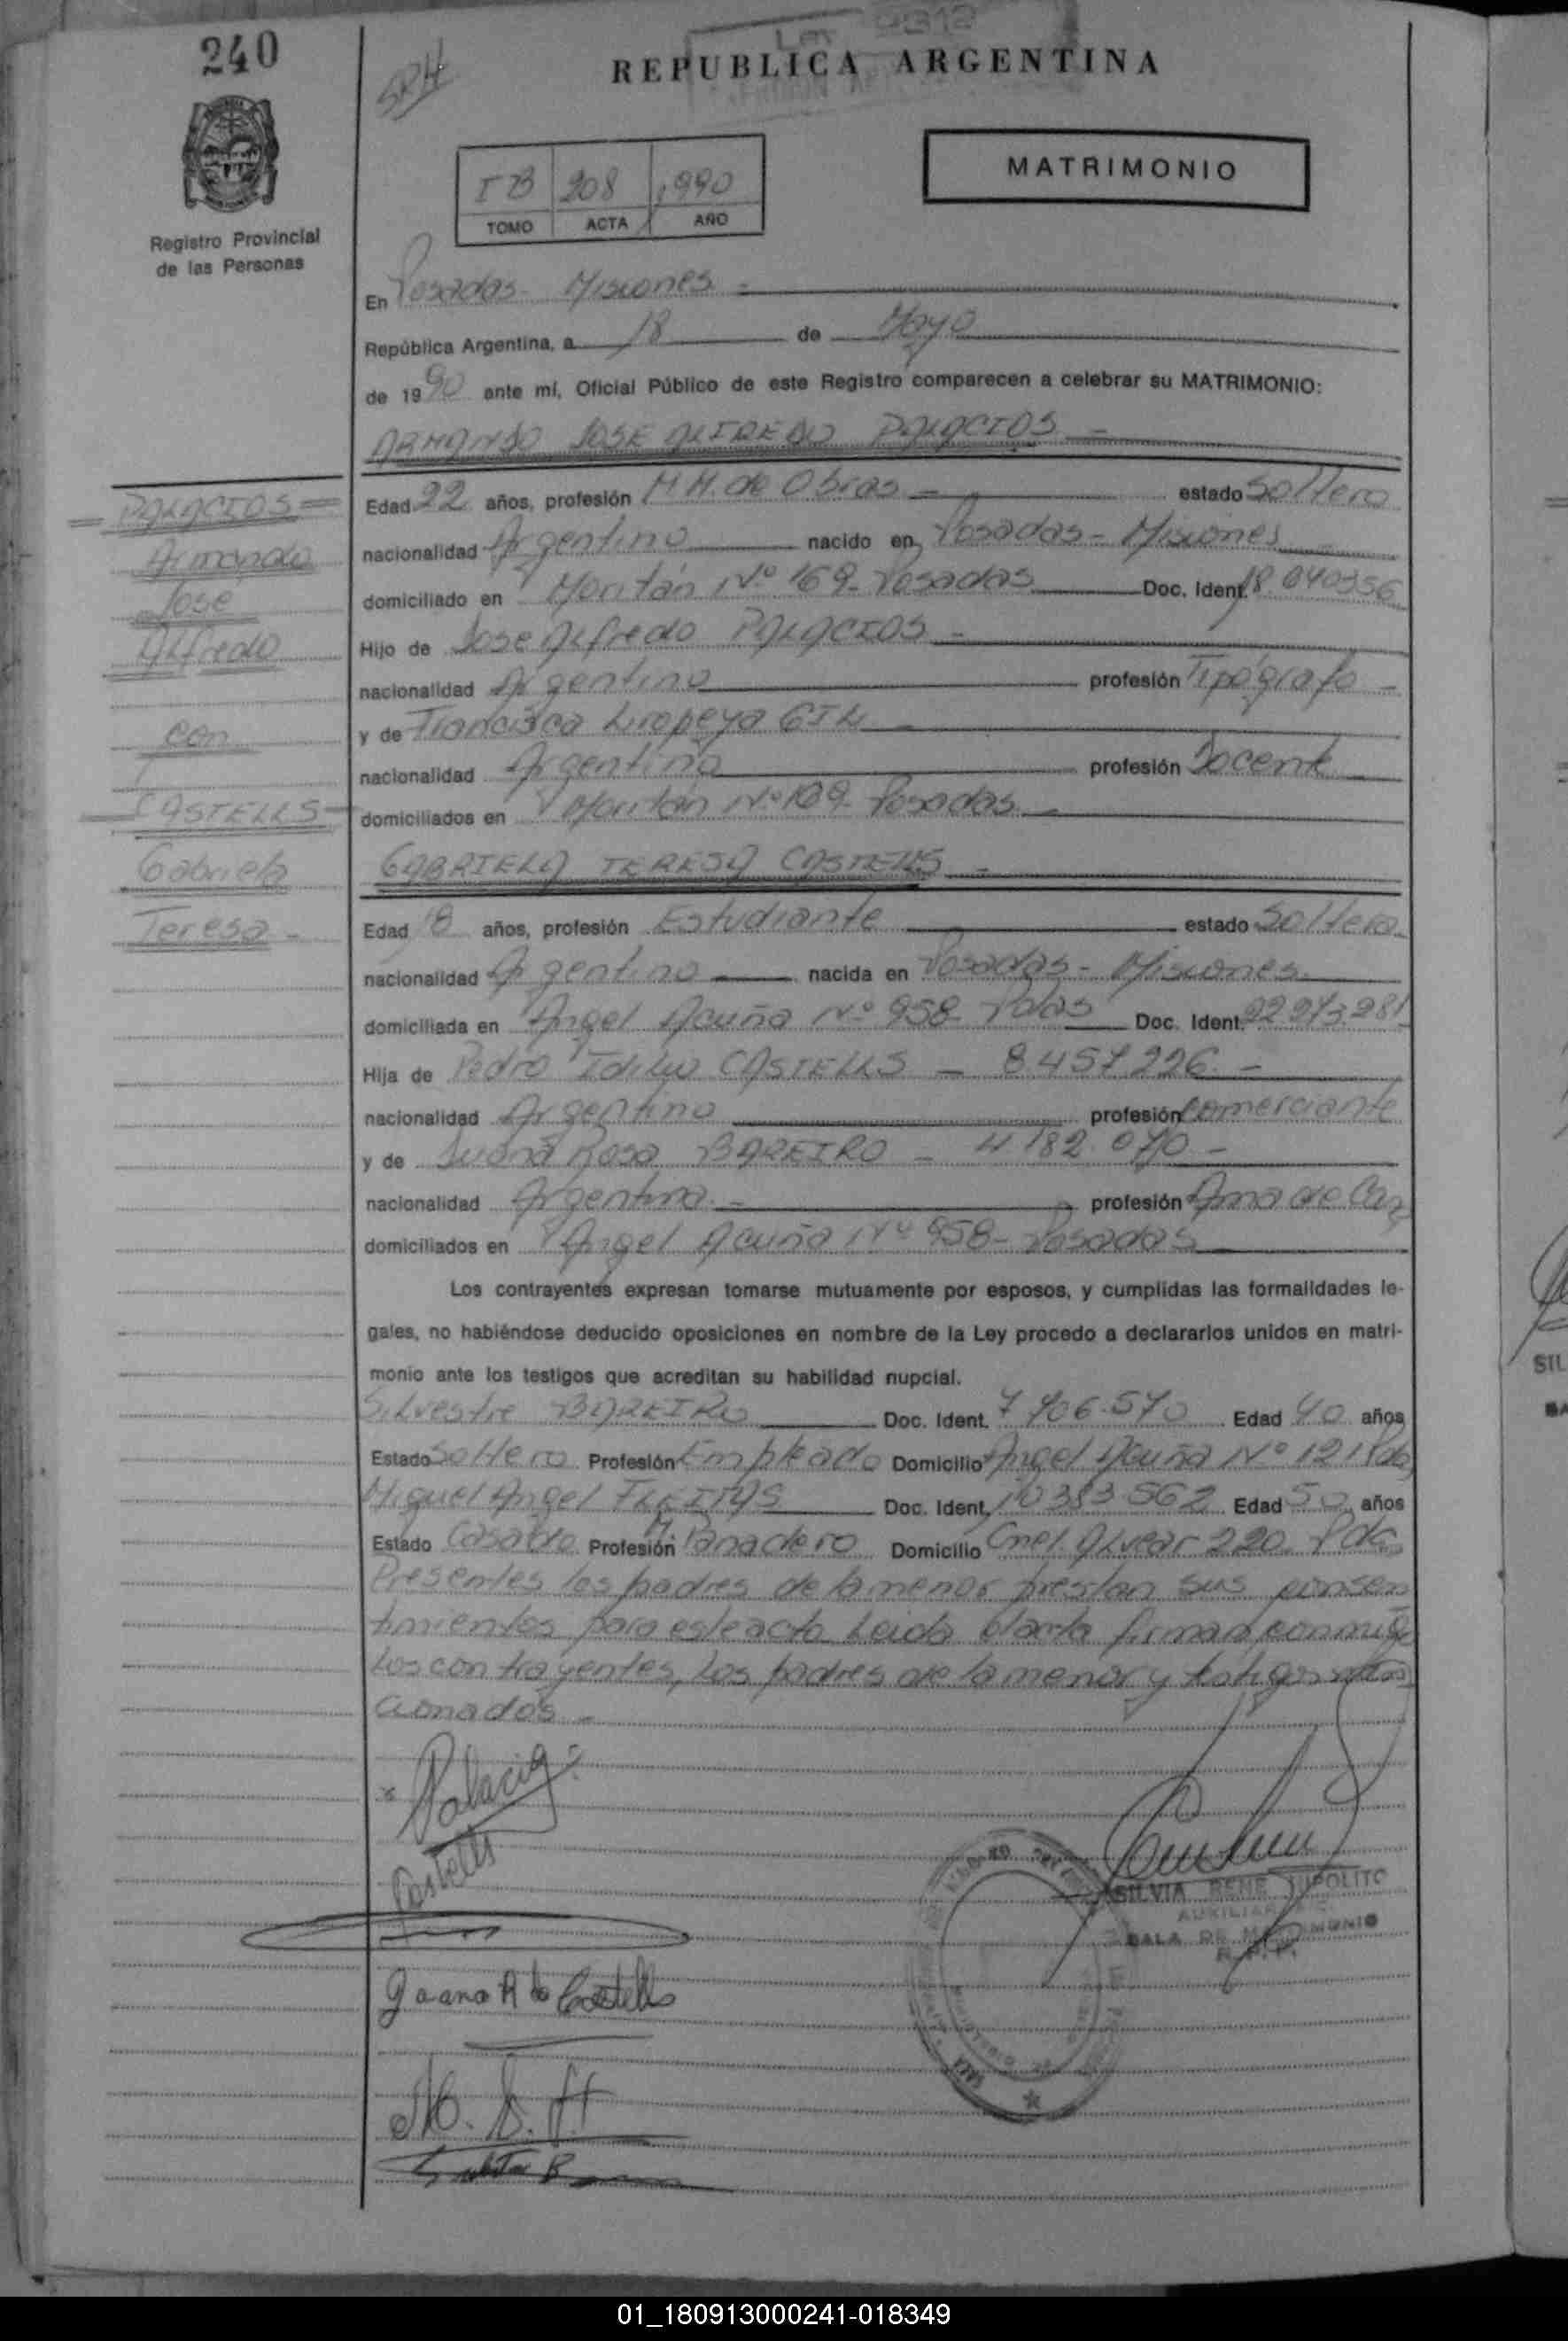 240
REPUBLICA ARGENTINA
MATRIMONIO
I B 208 1990
TOMO ACTA AÑO
Registro Provincial
de las Personas
En Posadas - Misiones -
República Argentina, a 18 de Mayo
de 1990 ante mí, Oficial Público de este Registro comparecen a celebrar su MATRIMONIO:
ARMANDO JOSE ALFREDO PALACIOS -
PALACIOS
Armando
José
Alfredo
con
CASTELLS
Gabriela
Teresa -
Edad 22 años, profesión M.M. de Obras - estado Soltero
nacionalidad Argentino nacido en Posadas - Misiones
domiciliado en Moritán Nº 169 - Posadas Doc. Ident. 18.040356
Hijo de José Alfredo PALACIOS -
nacionalidad Argentino profesión Tipógrafo -
y de Francisca Liropeya GIL -
nacionalidad Argentina profesión Docente
domiciliados en Moritán Nº 169 - Posadas -
GABRIELA TERESA CASTELLS -
Edad 18 años, profesión Estudiante estado Soltera
nacionalidad Argentina nacida en Posadas - Misiones
domiciliada en Angel Acuña Nº 958 - Pdas Doc. Ident. 22.273.281
Hija de Pedro Idilio CASTELLS - 8.457.226 -
nacionalidad Argentino profesión Comerciante
y de Juana Rosa BAREIRO - 4.182.070 -
nacionalidad Argentina - profesión Ama de Casa
domiciliados en Angel Acuña Nº 958 - Posadas
Los contrayentes expresan tomarse mutuamente por esposos, y cumplidas las formalidades le-
gales, no habiéndose deducido oposiciones en nombre de la Ley procedo a declararlos unidos en matri-
monio ante los testigos que acreditan su habilidad nupcial.
Silvestre BAREIRO Doc. Ident. 7.706.570 Edad 40 años
Estado Soltero Profesión Empleado Domicilio Angel Acuña Nº 121 Pdas
Miguel Angel FLEITAS Doc. Ident. 10383.562 Edad 50 años
Estado Casado Profesión M. Panadero Domicilio Cnel. Alvear 220. Pdas
Presentes los padres de la menor prestan sus consen
timientos para este acto. Leida el acta firman conmigo
los contrayentes, los padres de la menor y testigos men
cionados -
Palacios
Castells
Juana R de Castells
SILVIA RENE HIPOLITO
AUXILIAR
SALA DE MATRIMONIO
R.P.P.
01_180913000241-018349